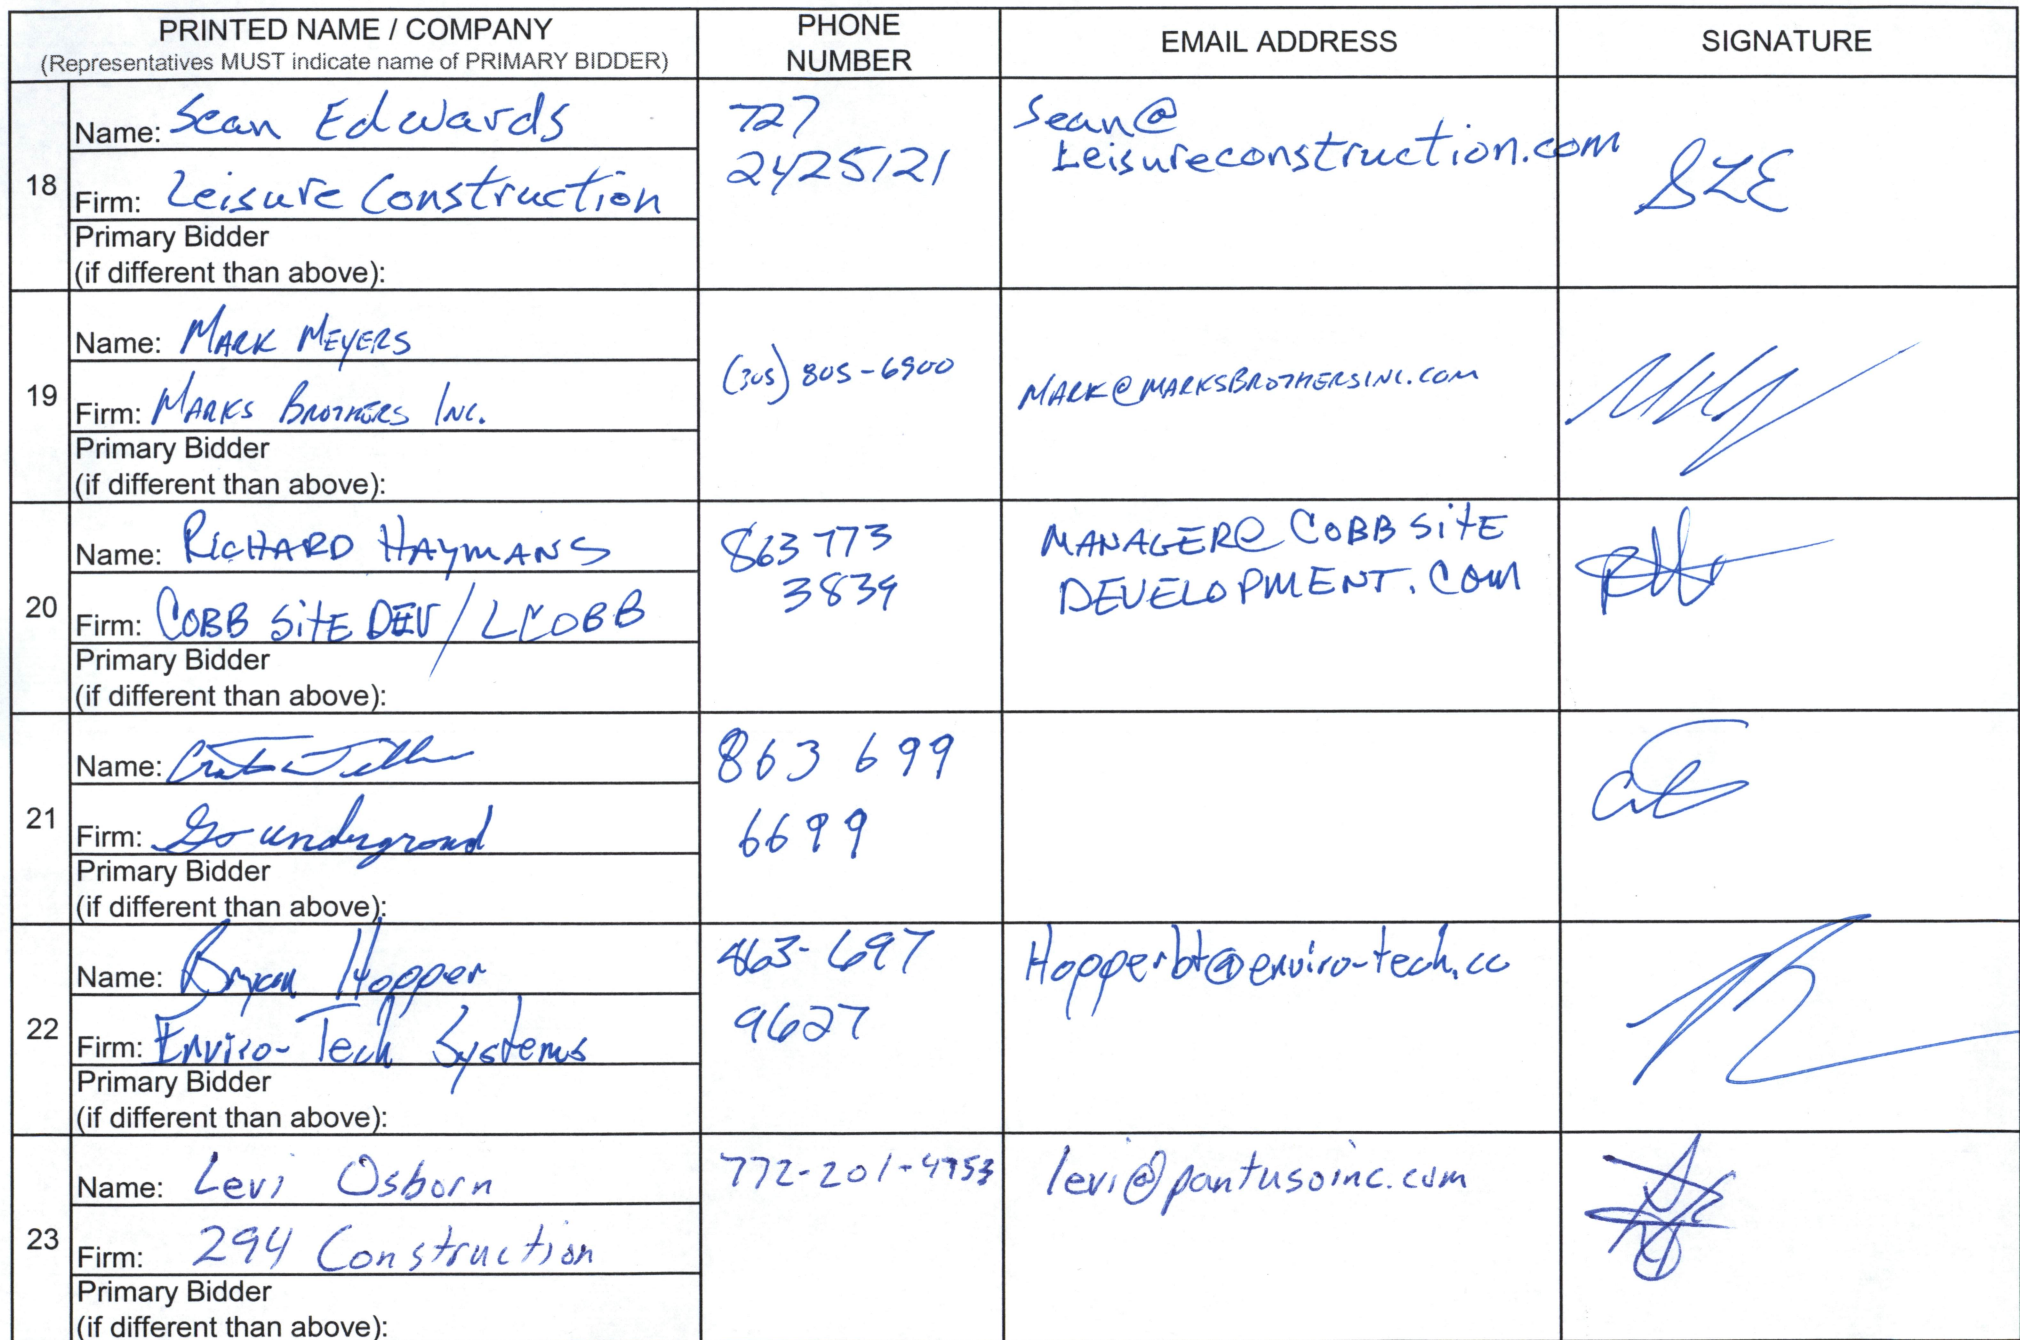 PRINTED NAME / COMPANY
(Representatives MUST indicate name of PRIMARY BIDDER)
PHONE
NUMBER
EMAIL ADDRESS
SIGNATURE
18
Name: Sean Edwards
Firm: Leisure Construction
Primary Bidder
(if different than above):
727
2425121
Sean@
Leisureconstruction.com
SZE
19
Name: MARK MEYERS
Firm: MARKS BROTHERS INC.
Primary Bidder
(if different than above):
(305) 805-6900
MARK@MARKSBROTHERSINC.COM
20
Name: RICHARD HAYMANS
Firm: COBB SiTE DEV / LCOBB
Primary Bidder
(if different than above):
863 773
3839
MANAGER@ COBB SiTE
DEVELOPMENT. COM
21
Name:
Firm: Go undergroud
Primary Bidder
(if different than above):
863 699
6699
22
Name: Bryan Hopper
Firm: Enviro-Tech Systems
Primary Bidder
(if different than above):
863-697
9627
Hopperbt@enviro-tech.cc
23
Name: Levi Osborn
Firm: 294 Construction
Primary Bidder
(if different than above):
772-201-4953
levi@pantusoinc.com